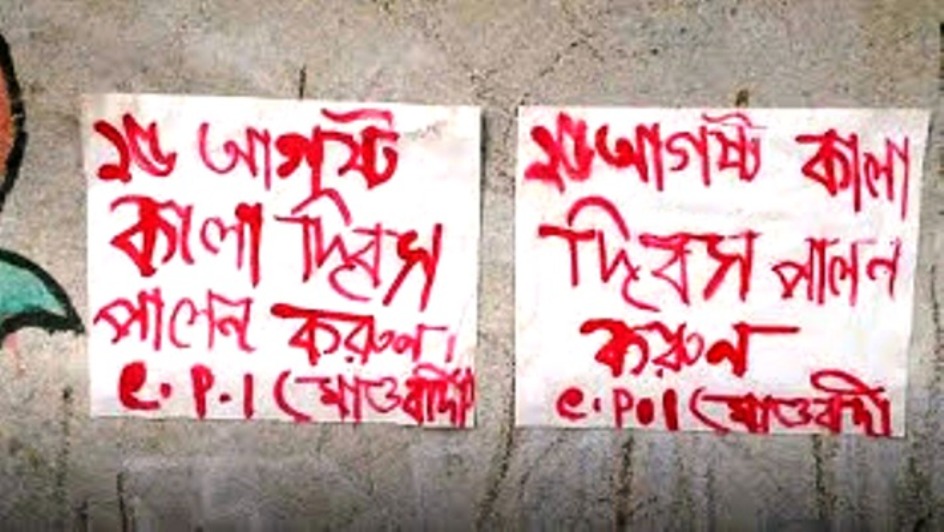 ১৫ আগষ্ট
কালা দিবস
পালন করুন।
C.P.I (মাওবাদী)
১৫ আগষ্ট কালা
দিবস পালন
করুন
C.P.I (মাওবাদী